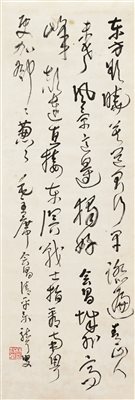 东方欲晓莫道君行早踏遍青山人
未老风景这边独好会昌城外高
峰颠连直接东溟战士指看南粤
更加郁〻葱〻毛主席会昌清平乐